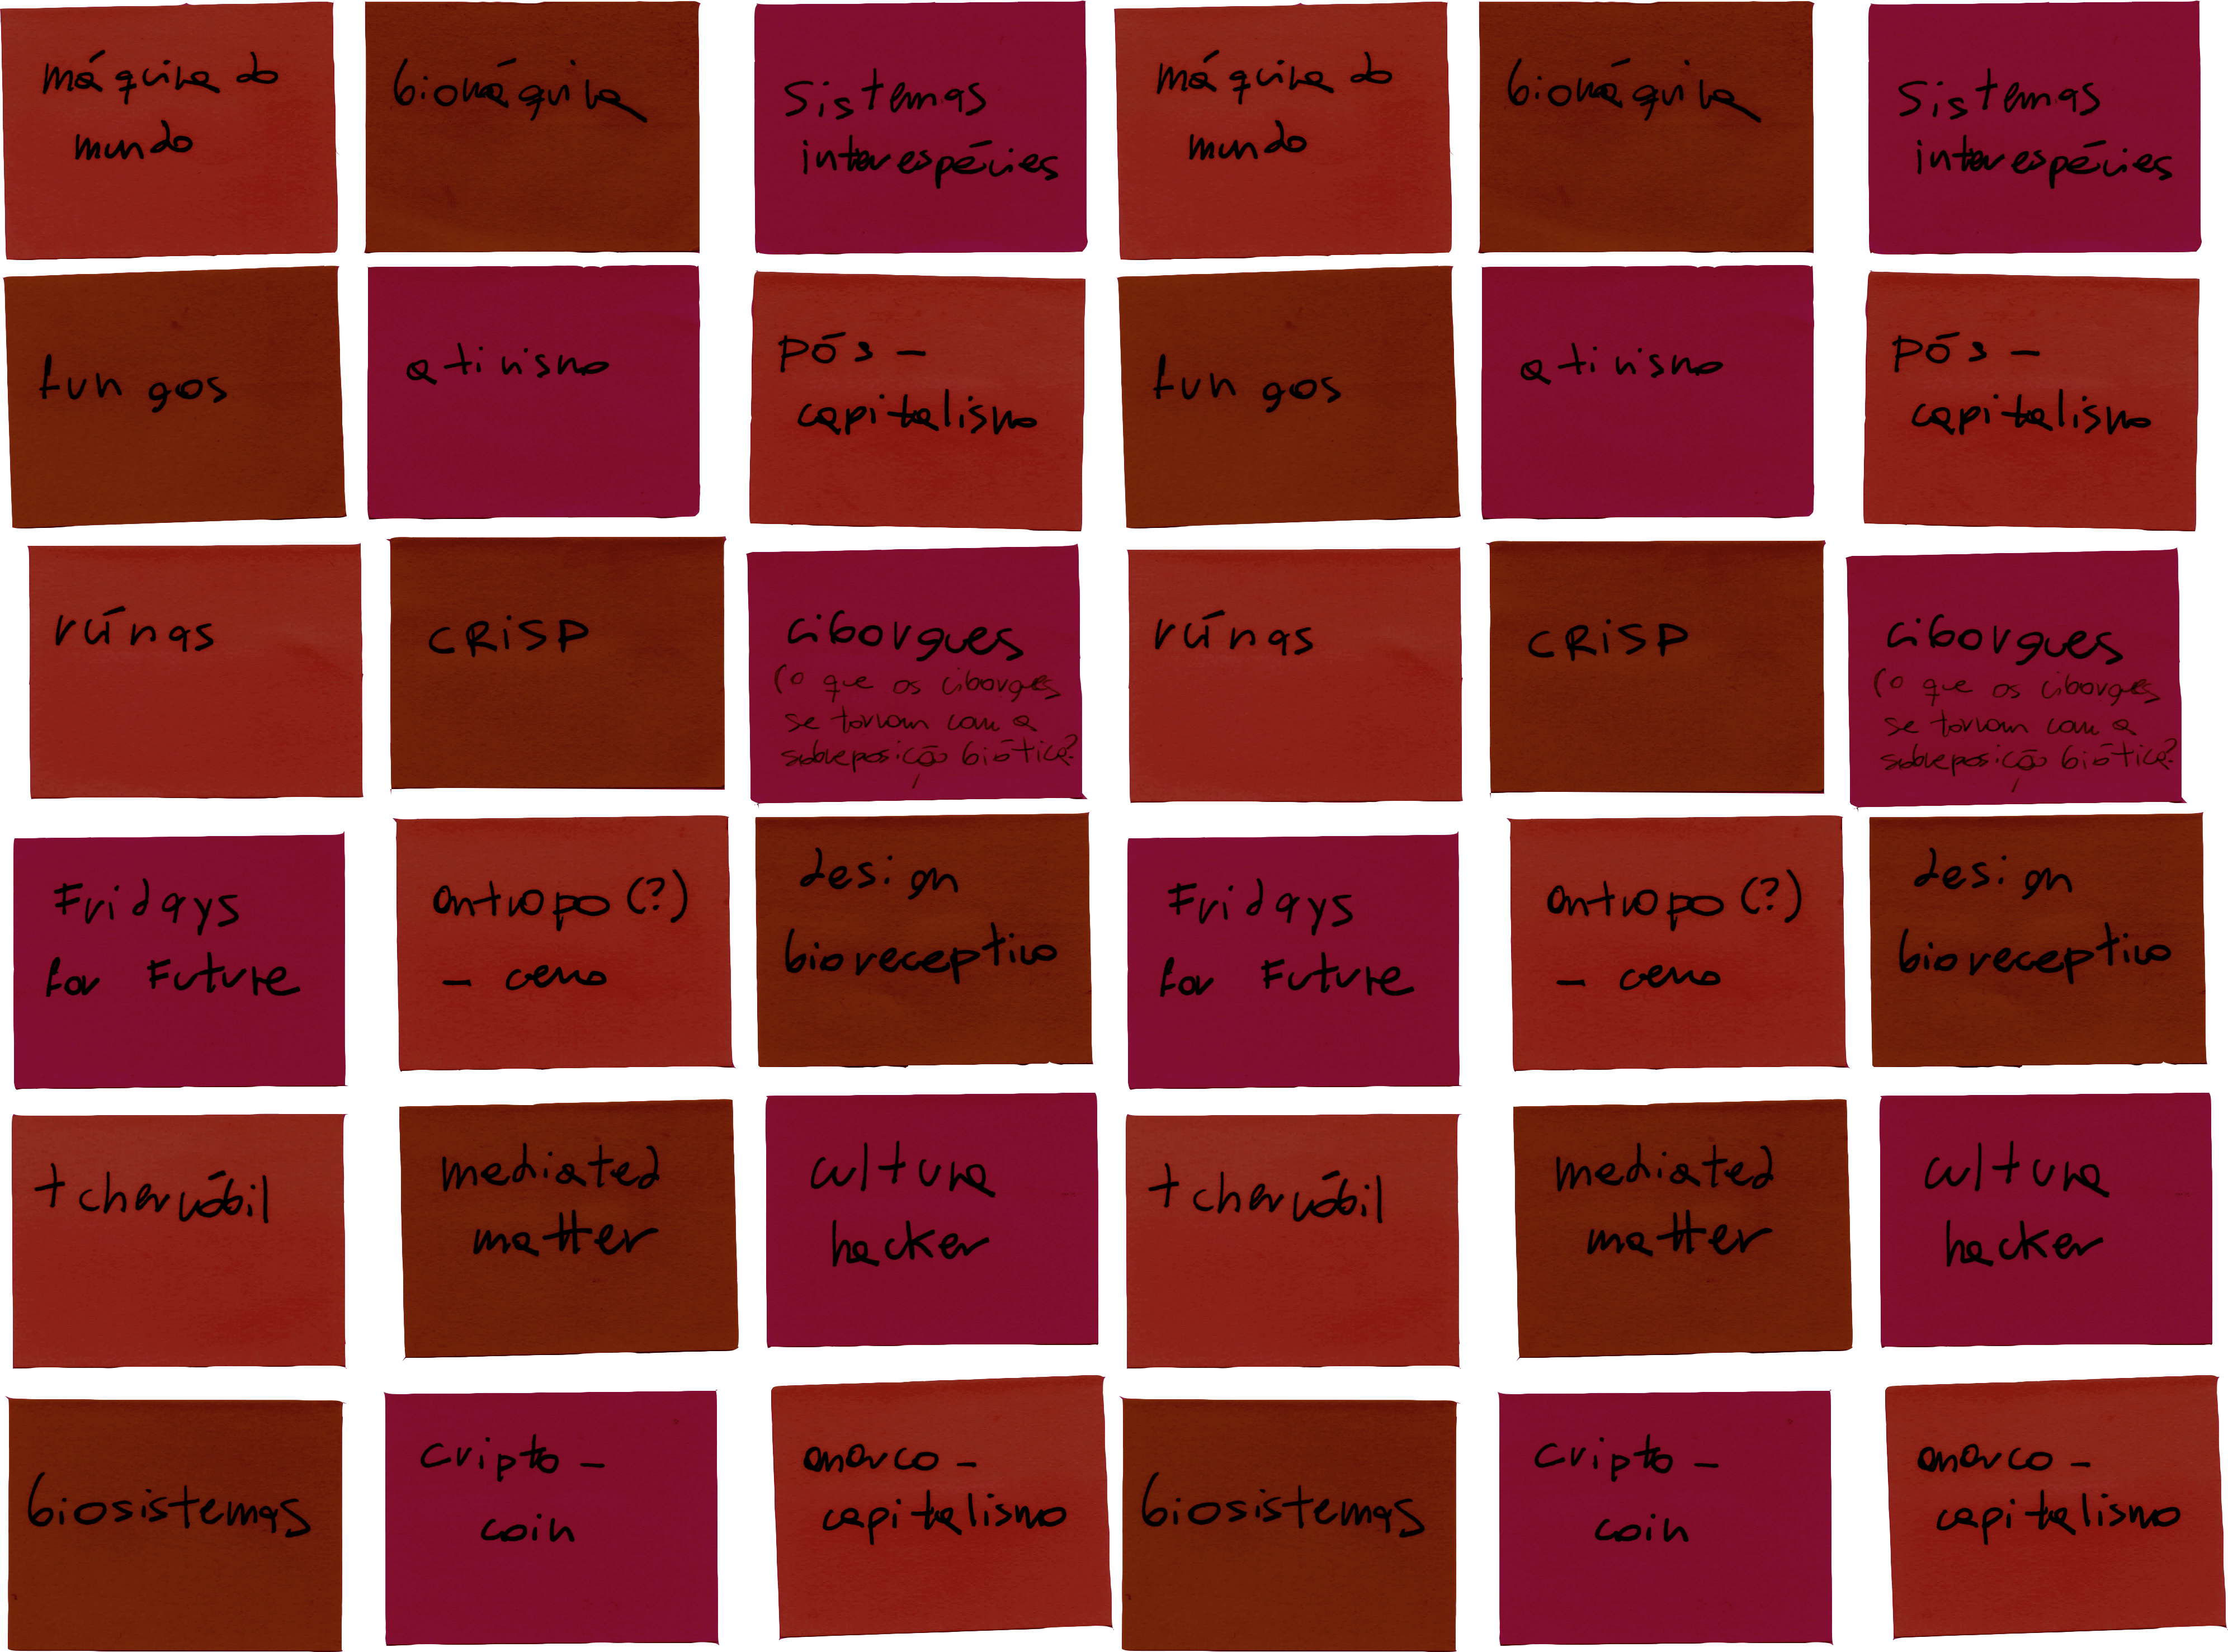 máquina do
mundo
biomáquina
Sistemas
interespécies
máquina do
mundo
biomáquina
Sistemas
interespécies
fungos
ativismo
pós-
capitalismo
fungos
ativismo
pós-
capitalismo
ruínas
CRiSP
ciborgues
(o que os ciborgues
se tornam com a
sobreposição biótica?
ruínas
CRiSP
ciborgues
(o que os ciborgues
se tornam com a
sobreposição biótica?
Fridays
For Future
antropo(?)
- ceno
design
bioreceptivo
Fridays
For Future
antropo(?)
- ceno
design
bioreceptivo
tchernóbil
mediated
matter
cultura
hacker
tchernóbil
mediated
matter
cultura
hacker
biosistemas
cripto-
coin
anarco-
capitalismo
biosistemas
cripto-
coin
anarco-
capitalismo